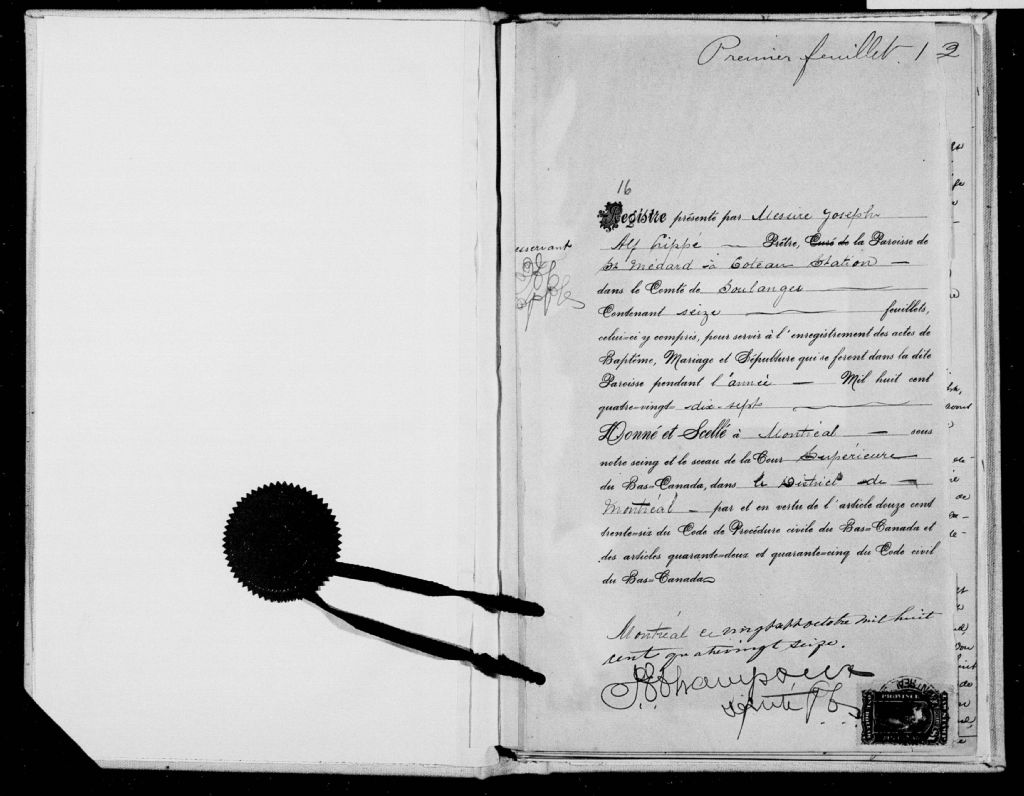 Premier feuillet. 1 2
16
Registre présenté par Messire Joseph
Alf Cippé — Prêtre, Curé de la Paroisse de
St Médard à Coteau Station —
dans le Comté de Soulanges
Contenant seize feuillets,
celui-ci y compris, pour servir à l'enregistrement des actes de
Baptême, Mariage et Sépulture qui se feront dans la dite
Paroisse pendant l'année — Mil huit cent
quatre-vingt dix-sept
Donné et Scellé à Montréal — sous
notre seing et le sceau de la Cour Supérieure
du Bas-Canada, dans le District de —
Montréal — par et en vertu de l'article douze cent
trente-six du Code de Procédure civile du Bas-Canada et
des articles quarante-deux et quarante-cinq du Code civil
du Bas-Canada
Montréal ce vingt sept octobre mil huit
cent quatrevingt seize.
Député P.C.S.
esservant
PROVINCE